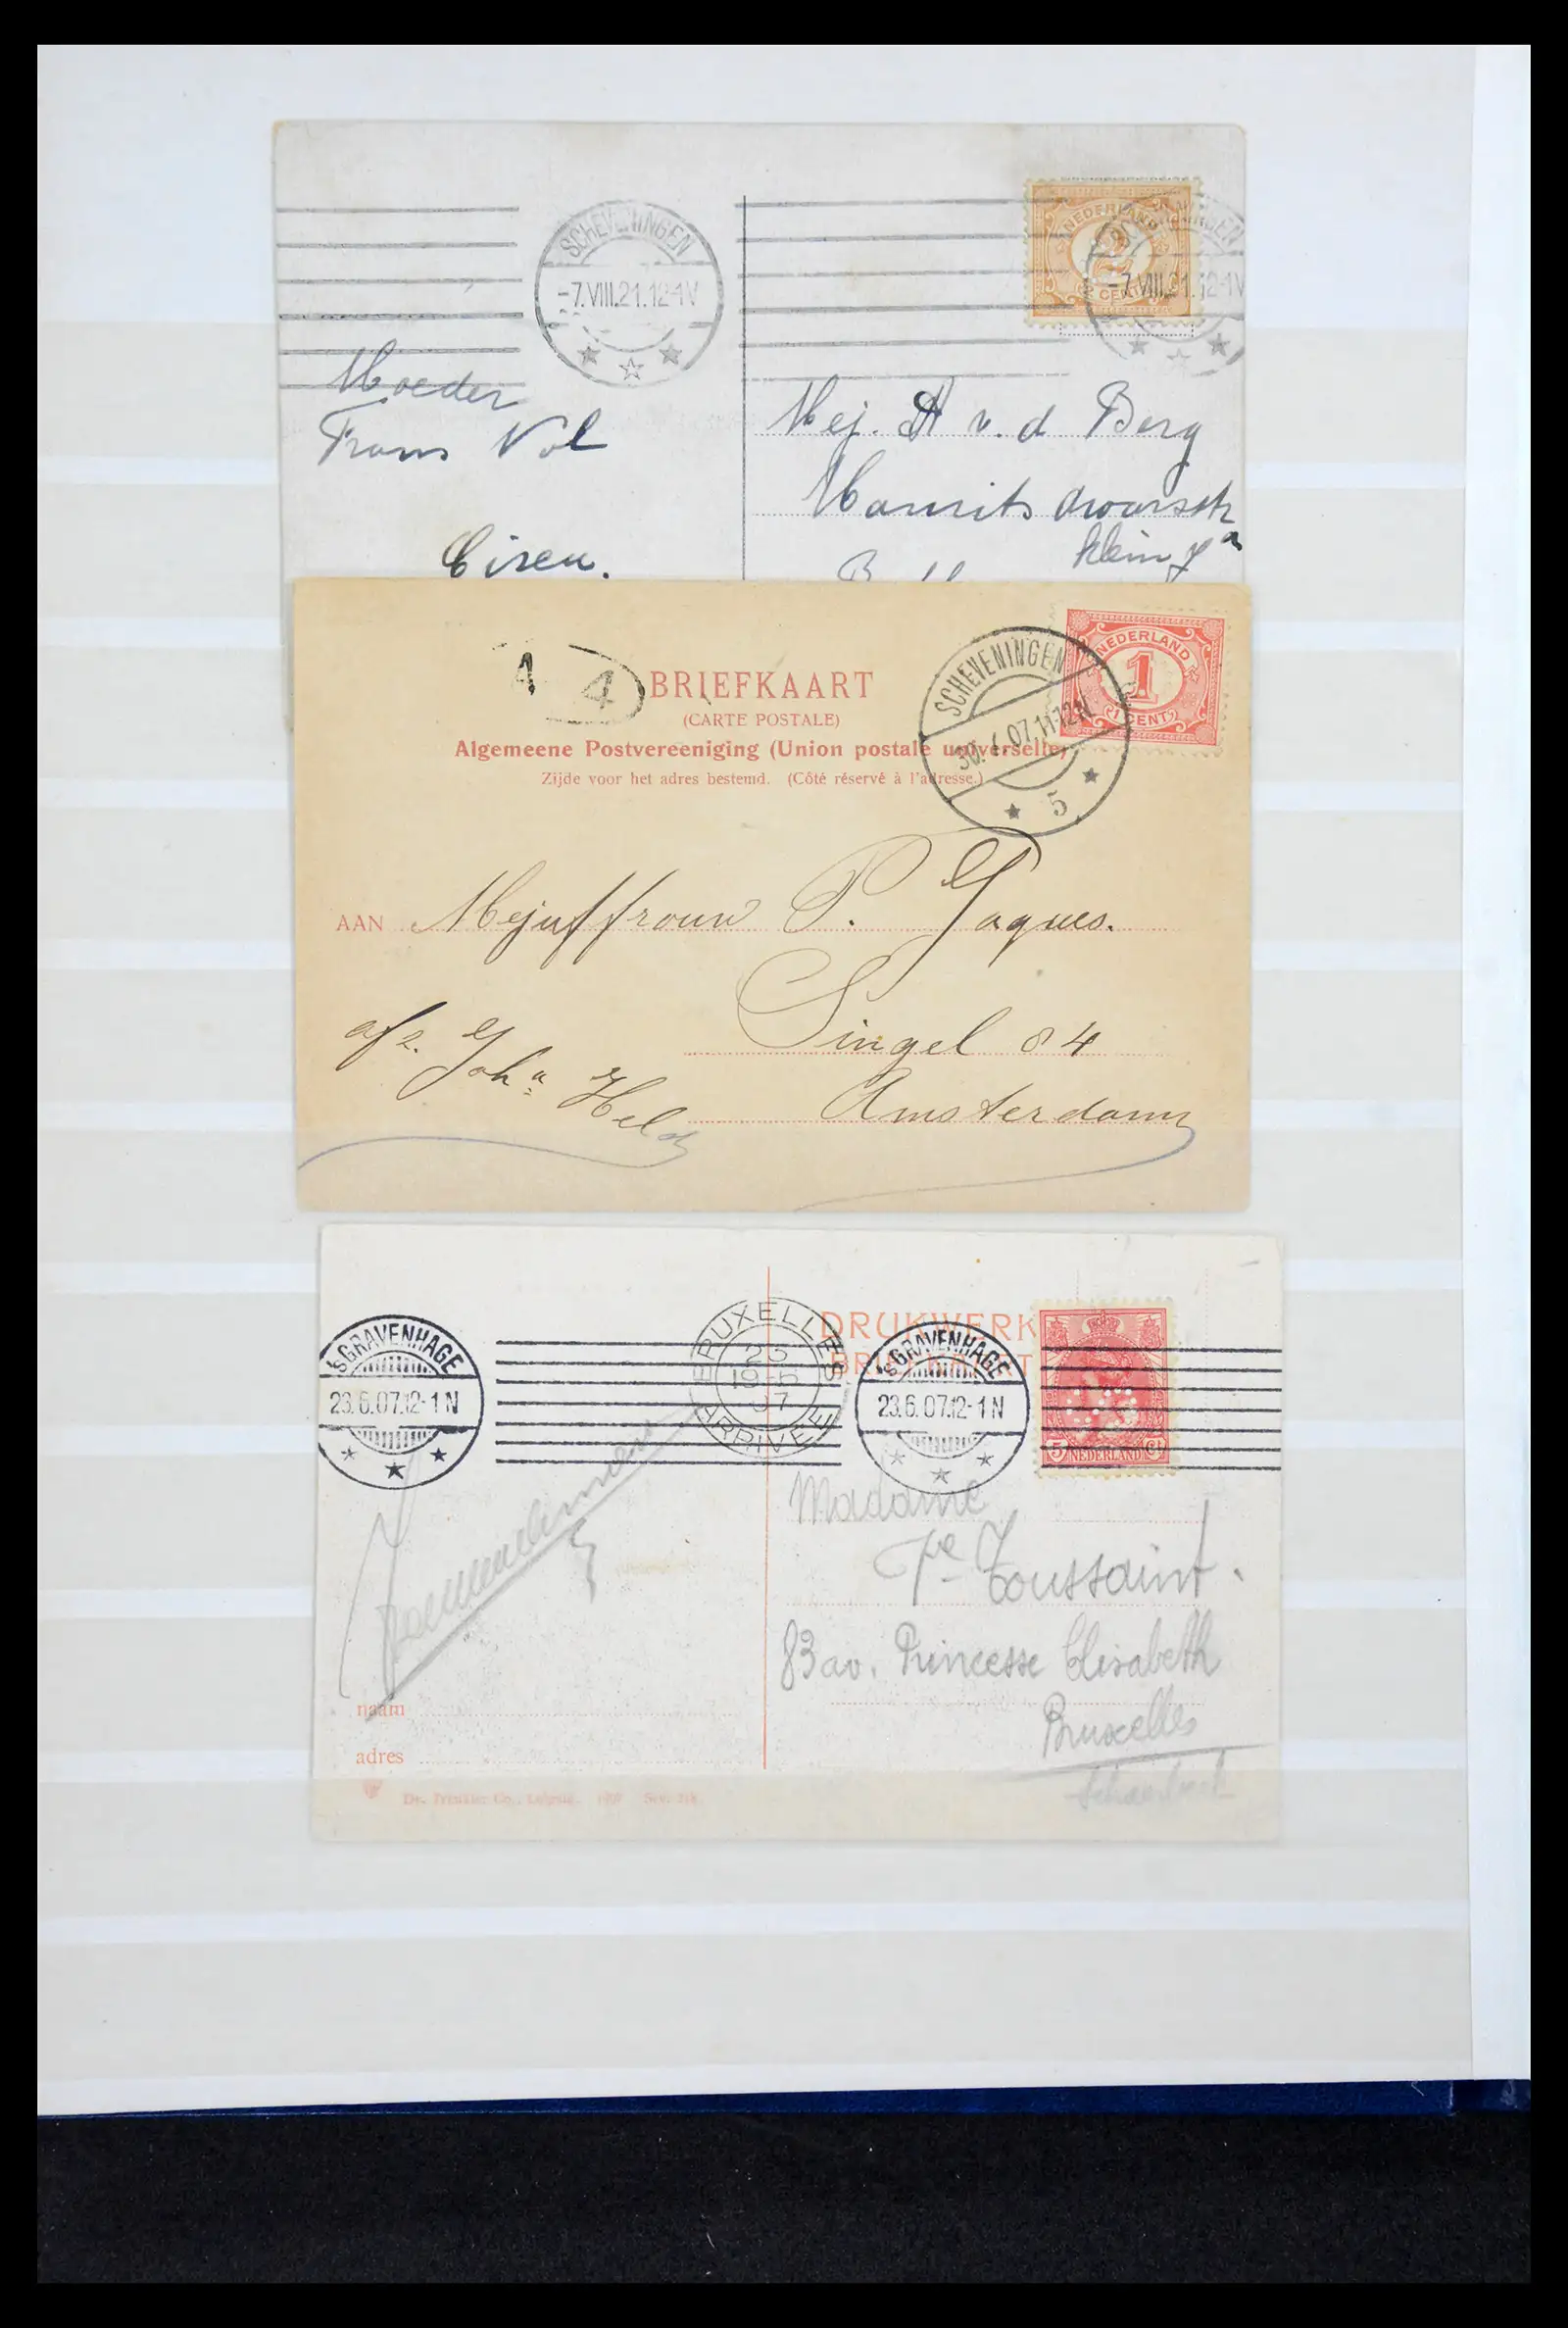 SCHEVENINGEN
-7.VIII.21.12-1V
NEDERLAND
2
CENT
-7.VIII.21.12-1V
Moeder
Frans Nol
Mej. A v. d Berg
Maurits dwarsstr
klein
BRIEFKAART
(CARTE POSTALE)
Algemeene Postvereeniging (Union postale universelle)
Zijde voor het adres bestemd. (Côté réservé à l'adresse.)
4
4
SCHEVENINGEN
07.11-12V
5
NEDERLAND
1
1 CENT
AAN Mejuffrouw P. Jaques.
Singel 84
Amsterdam
afz. Joha Held
DRUKWERK
BRIEFKAART
'SGRAVENHAGE
23.6.07.12-1N
BRUXELLES
ARRIVEE
'SGRAVENHAGE
23.6.07.12-1N
5 NEDERLAND Ct
Madame
Toussaint.
83 av. Princesse Elisabeth
Bruxelles
Schaerbeek
naam
adres
Dr. Trenkler Co., Leipzig. 1907